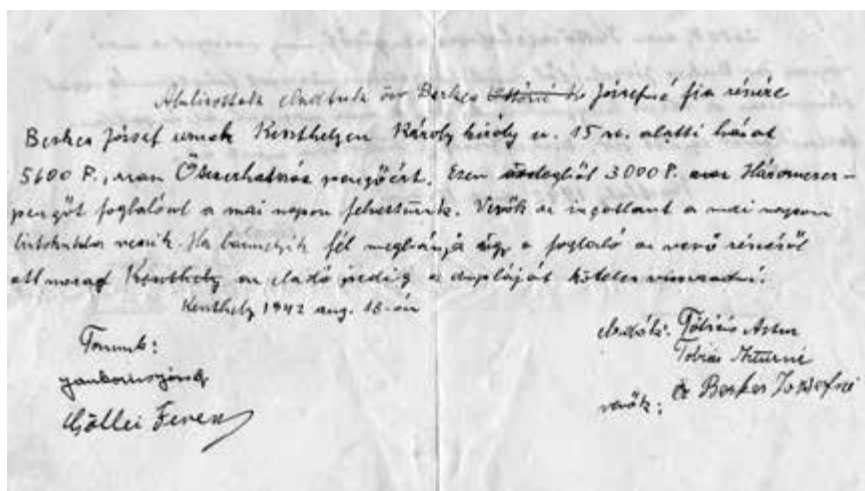 Alulírottak eladtuk özv Berkes Józsefné fia részére
Berkes József urnak Keszthelyen Károly király u. 15 sz. alatti házát
5600 P., azaz Ötezerhatszáz pengőért. Ezen összegből 3000 P. azaz Háromezer-
pengőt foglalóul a mai napon felvettünk. Vevők az ingatlant a mai napon
birtokukba veszik. Ha bármelyik fél megbánja úgy a foglaló az vevő részéről
ott marad Keszthely az eladó pedig a dupláját köteles visszaadni.
Keszthely 1942 aug. 18-án
Tanuk:
Göllei Ferenc
eladók: Tóbiás Artur
Tobiás Arturné
vevők: öz Berkes Jozsefné